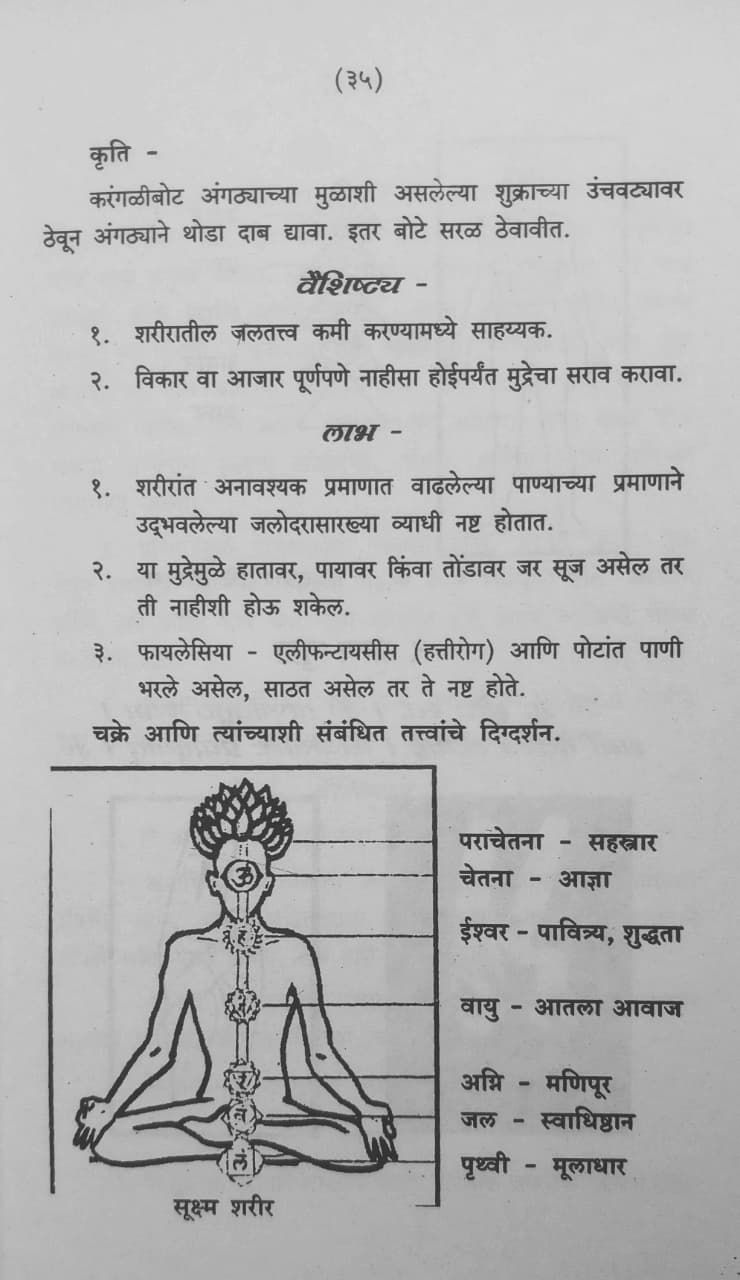 (३५)
कृति -
करंगळीबोट अंगठ्याच्या मुळाशी असलेल्या शुक्राच्या उंचवट्यावर
ठेवून अंगठ्याने थोडा दाब द्यावा. इतर बोटे सरळ ठेवावीत.
वैशिष्ट्य -
१. शरीरातील जलतत्त्व कमी करण्यामध्ये साहय्यक.
२. विकार वा आजार पूर्णपणे नाहीसा होईपर्यंत मुद्रेचा सराव करावा.
लाभ -
१. शरीरांत अनावश्यक प्रमाणात वाढलेल्या पाण्याच्या प्रमाणाने
उद्‌भवलेल्या जलोदरासारख्या व्याधी नष्ट होतात.
२. या मुद्रेमुळे हातावर, पायावर किंवा तोंडावर जर सूज असेल तर
ती नाहीशी होऊ शकेल.
३. फायलेसिया - एलीफन्टायसीस (हत्तीरोग) आणि पोटांत पाणी
भरले असेल, साठत असेल तर ते नष्ट होते.
चक्रे आणि त्यांच्याशी संबंधित तत्त्वांचे दिग्दर्शन.
पराचेतना - सहस्त्रार
ॐ
चेतना - आज्ञा
ह
ईश्वर - पावित्र्य, शुद्धता
वायु - आतला आवाज
अग्नि - मणिपूर
जल - स्वाधिष्ठान
लं
पृथ्वी - मूलाधार
सूक्ष्म शरीर